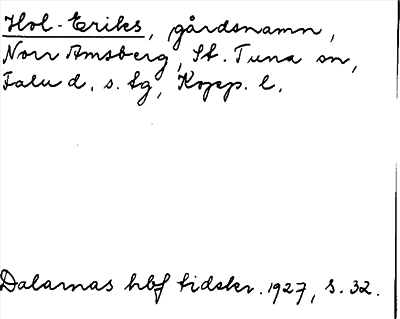 Hol-Eriks, gårdsnamn,
Norr Amsberg, St. Tuna sn,
Falu d. s. tg, Kopp. l.
Dalarnas hbf tidskr. 1927, s. 32.